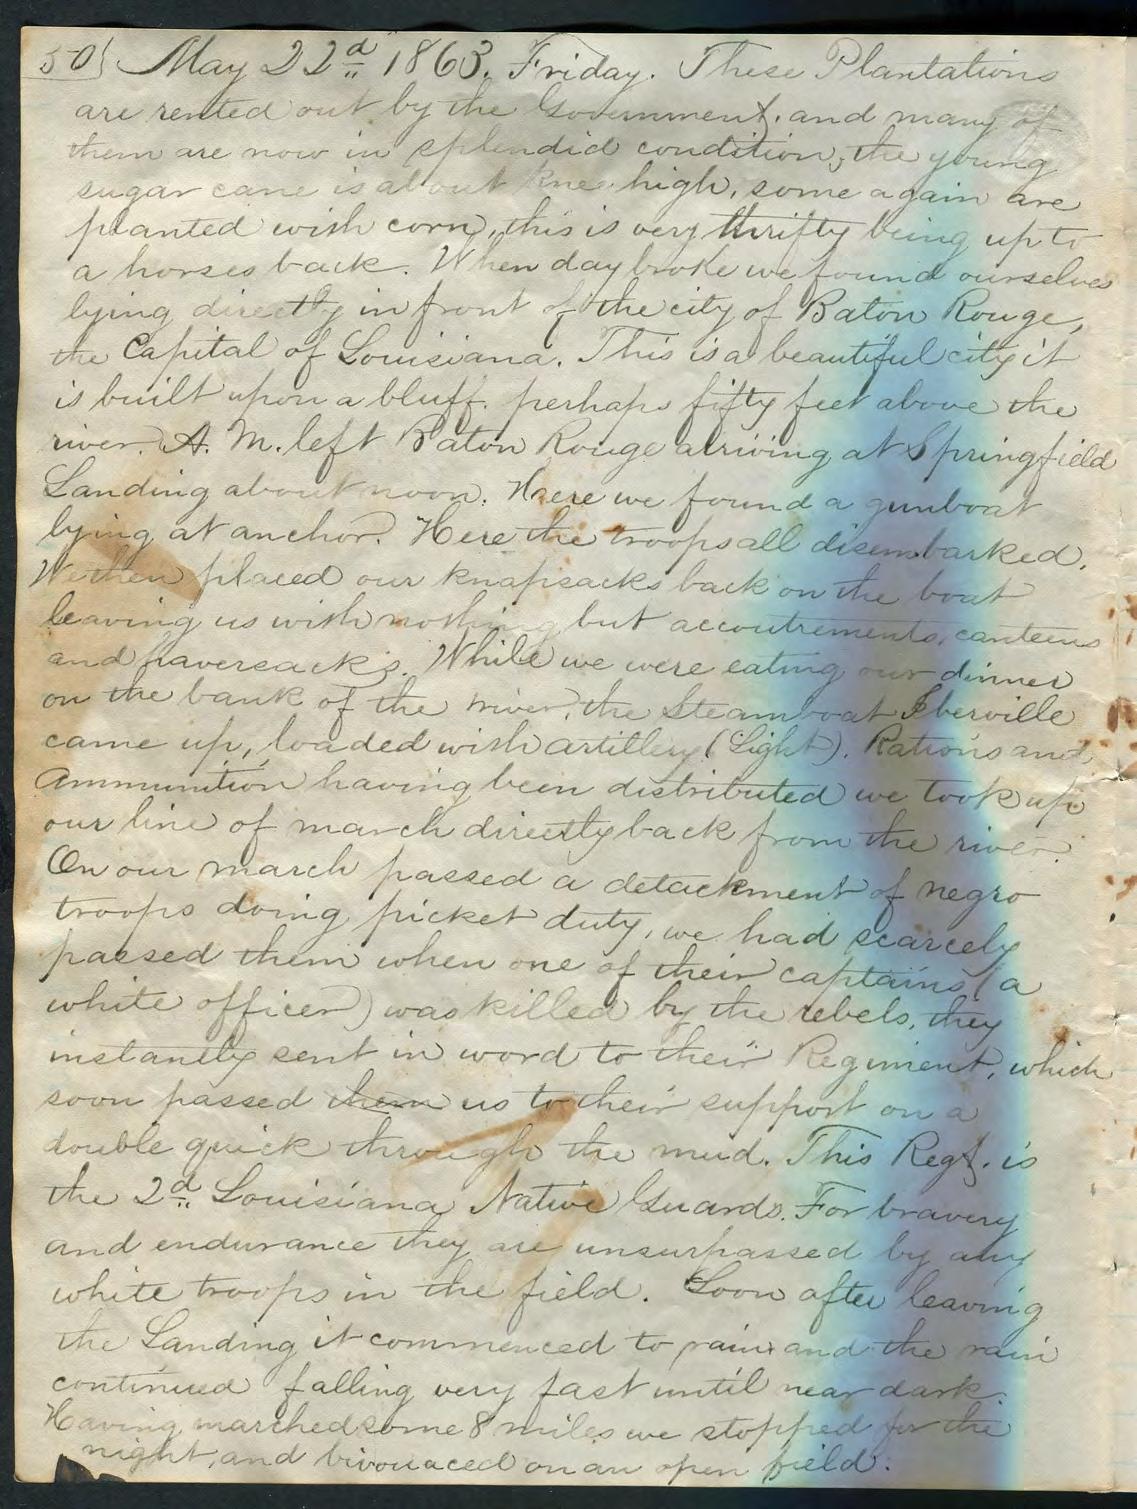 50} May 22d 1863. Friday. These Plantations
are rented out by the Government, and many of
them are now in splendid condition, the young
sugar cane is about knee high, some again are
planted with corn, this is very thrifty being up to
a horses back. When day broke we found ourselves
lying directly in front of the city of Baton Rouge,
the Capital of Louisiana. This is a beautiful city it
is built upon a bluff. perhaps fifty feet above the
river. A. M. left Baton Rouge arriving at Springfield
Landing about noon. Here we found a gunboat
lying at anchor. Here the troops all disembarked.
We then placed our knapsacks back on the boat
leaving us with nothing but accoutrements, canteens
and haversacks. While we were eating our dinner
on the bank of the river, the Steamboat Iberville
came up, loaded with artillery (Light). Rations and
Ammunition having been distributed we took up
our line of march directly back from the river.
On our march passed a detachment of negro
troops doing picket duty, we had scarcely
passed them when one of their captains (a
white officer) was killed by the rebels, they
instantly sent in word to their Regiment, which
soon passed them us to their support on a
double quick through the mud. This Regt. is
the 2d Louisiana Native Guards. For bravery
and endurance they are unsurpassed by any
white troops in the field. Soon after leaving
the Landing it commenced to rain and the rain
continued falling very fast until near dark.
Having marched some 8 miles we stopped for the
night, and bivouaced on an open field.